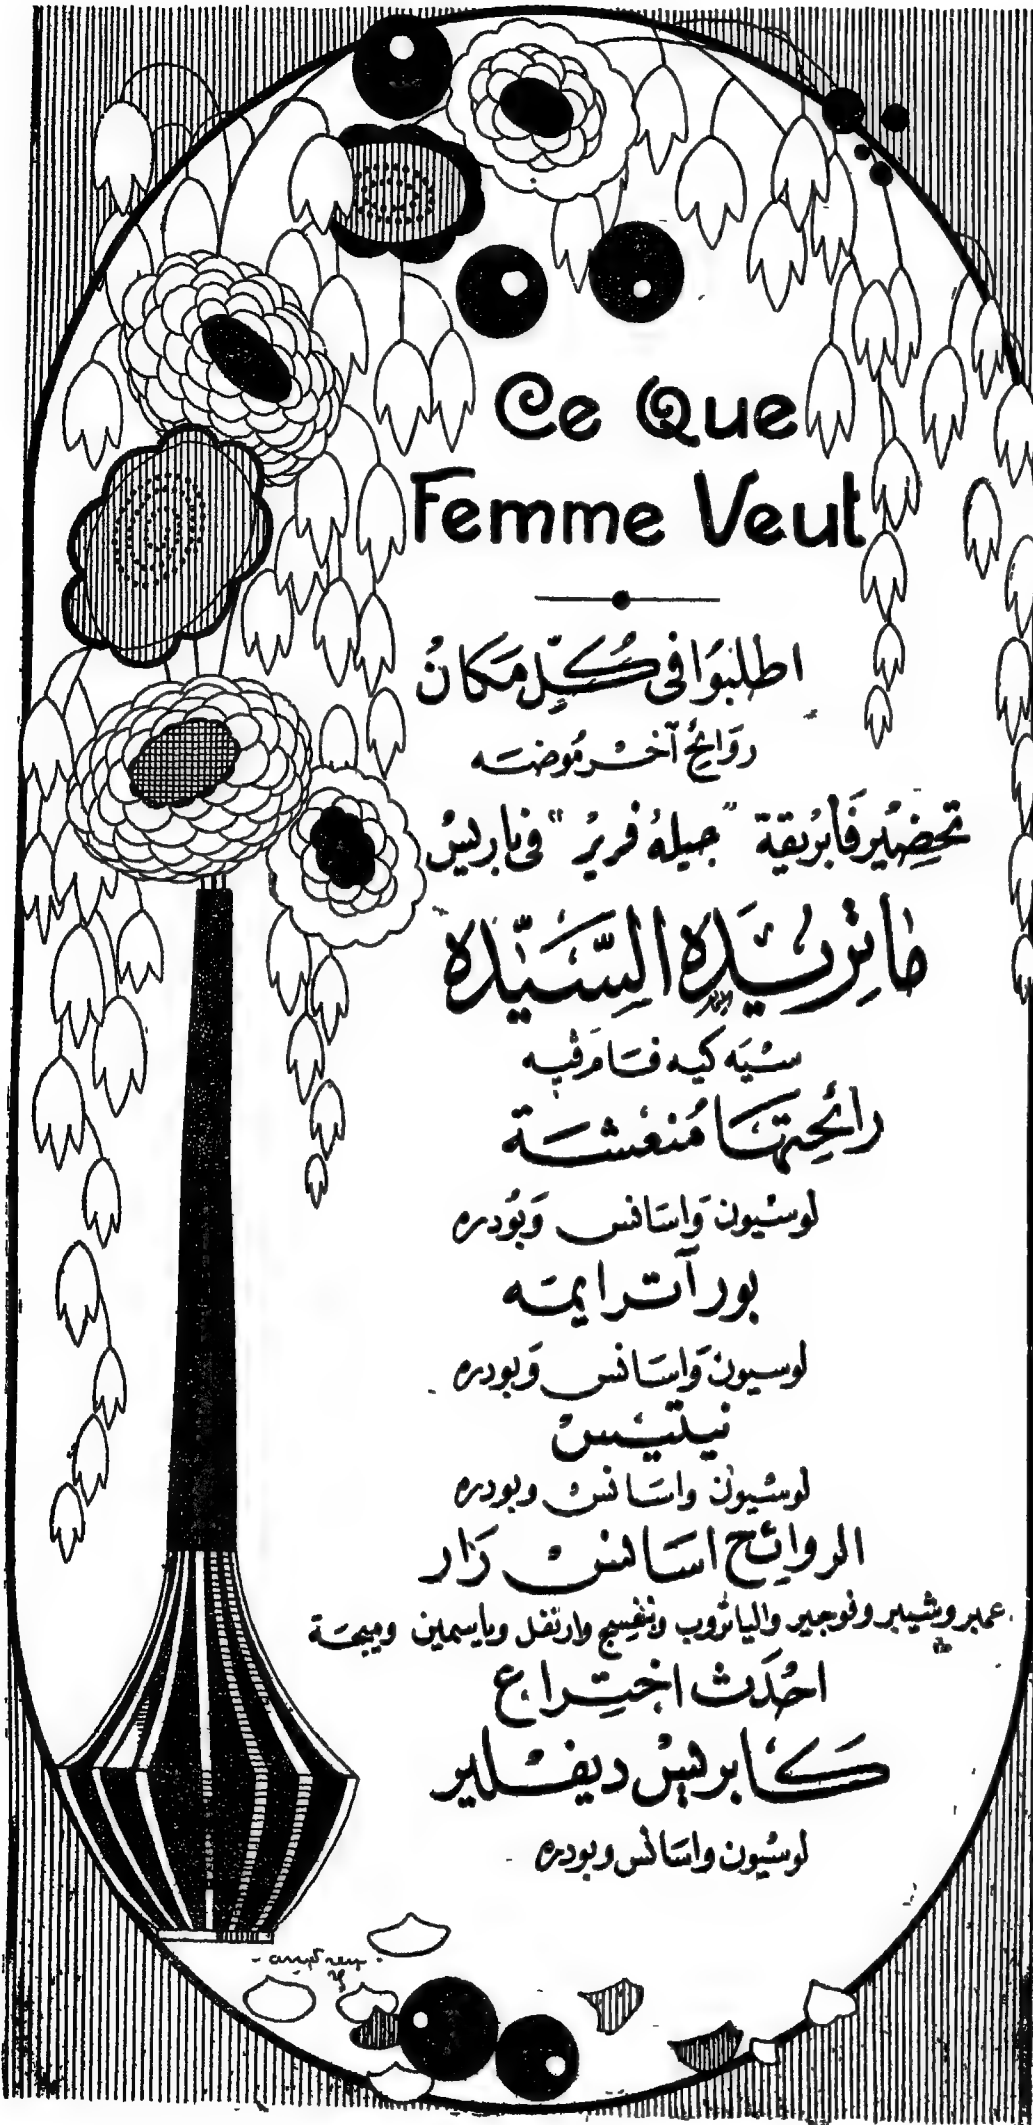 Ce Que
Femme Veut
اطلبوا فى كُلّ مكان
روائح آخر موضه
تحضير فابريقة "جيله فرير" فى باريس
ما تريده السيّده
سيه كيه فام فيه
رائحتها مُنعشة
لوسيون واسانس وبودره
بور آترايمه
لوسيون واسانس وبودره
نيلتيس
لوسيون واسانس وبودره
الروائح اسانس زار
عمبر وشيبر وفوجير واليانروب وبنفسج وارنفل وياسمين
احدث اختراع
كابريس ديفلير
لوسيون واسانس وبودره